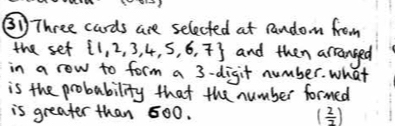 (31) Three cards are selected at random from
the set {1,2,3,4,5,6,7} and then arranged
in a row to form a 3-digit number. what
is the probability that the number formed
is greater than 600. (2/7)